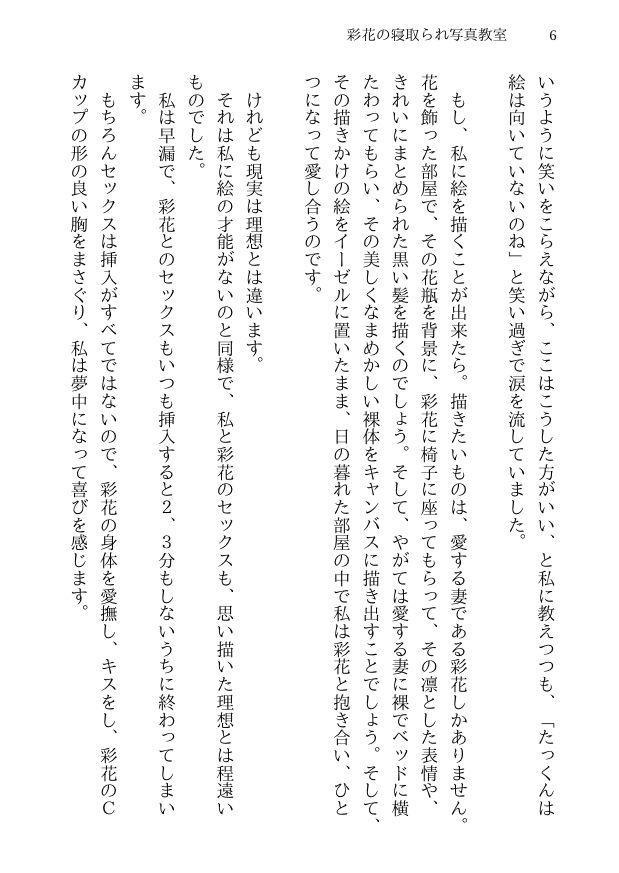 彩花の寝取られ写真教室
6
いうように笑いをこらえながら、ここはこうした方がいい、と私に教えつつも、「たっくんは
絵は向いていないのね」と笑い過ぎで涙を流していました。
もし、私に絵を描くことが出来たら。描きたいものは、愛する妻である彩花しかありません。
花を飾った部屋で、その花瓶を背景に、彩花に椅子に座ってもらって、その凛とした表情や、
きれいにまとめられた黒い髪を描くのでしょう。そして、やがては愛する妻に裸でベッドに横
たわってもらい、その美しくなまめかしい裸体をキャンバスに描き出すことでしょう。そして、
その描きかけの絵をイーゼルに置いたまま、日の暮れた部屋の中で私は彩花と抱き合い、ひと
つになって愛し合うのです。
けれども現実は理想とは違います。
それは私に絵の才能がないのと同様で、私と彩花のセックスも、思い描いた理想とは程遠い
ものでした。
私は早漏で、彩花とのセックスもいつも挿入すると２、３分もしないうちに終わってしまい
ます。
もちろんセックスは挿入がすべてではないので、彩花の身体を愛撫し、キスをし、彩花のＣ
カップの形の良い胸をまさぐり、私は夢中になって喜びを感じます。